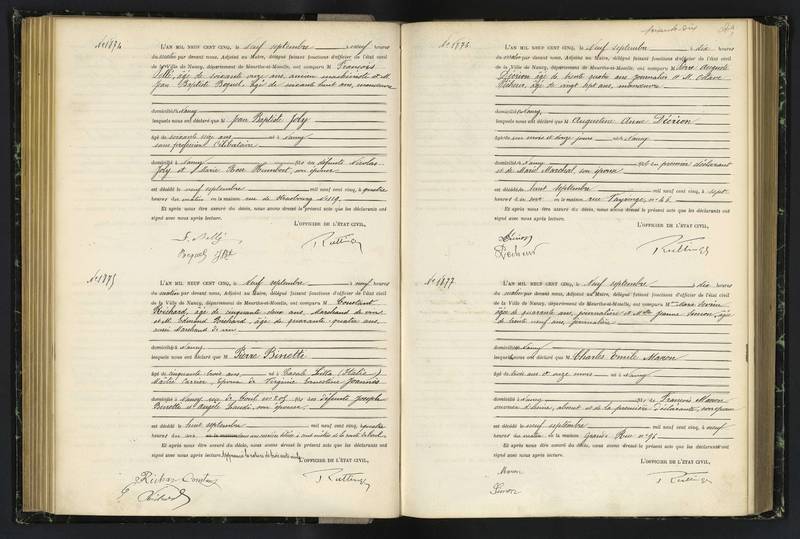 No 1874
L'AN MIL NEUF CENT CINQ, le Neuf septembre à neuf heures
du matin par devant nous, Adjoint au Maire, délégué faisant fonctions d'officier de l'état civil
de la Ville de Nancy, département de Meurthe-et-Moselle, ont comparu M François
âgé de soixante onze ans, ancien machiniste et M.
Jean Baptiste Bequel, âgé de soixante huit ans, manœuvre
domiciliés à Nancy
lesquels nous ont déclaré que M Jean Baptiste Joly
âgé de soixante ans né à Nancy
sans profession Célibataire
domicilié à Nancy fils en défunts Nicolas
Joly et Marie Rose Humbert, son épouse
est décédé le neuf septembre mil neuf cent cinq, à quatre
heures du matin en la maison rue de Strasbourg n° 119.
Et après nous être assuré du décès, nous avons dressé le présent acte que les déclarants ont
signé avec nous après lecture.
L'OFFICIER DE L'ÉTAT CIVIL,
Bequel
Ruttinger
No 1875
L'AN MIL NEUF CENT CINQ, le Neuf septembre à neuf heures
du matin par devant nous, Adjoint au Maire, délégué faisant fonctions d'officier de l'état civil
de la Ville de Nancy, département de Meurthe-et-Moselle, ont comparu M Constant
Richard, âgé de cinquante deux ans, Marchand de vin
et M. Edmond Rochard, âgé de quarante quatre ans,
aussi Marchand de vin
domiciliés à Nancy
lesquels nous ont déclaré que M Pierre Binette
âgé cinquante trois ans né à Casale Litta (Italie)
Maître Carrier, époux de Virginie Ernestine Joannès
domicilié à Nancy rue de Toul n° 205 fils des défunts Joseph
Binette et Angèle son épouse
est décédé le huit septembre mil neuf cent cinq, à quatre
heures du soir
Et après nous être assuré du décès, nous avons dressé le présent acte que les déclarants ont
signé avec nous après lecture.
L'OFFICIER DE L'ÉTAT CIVIL,
Richard Constant
Ruttinger
No 1876
L'AN MIL NEUF CENT CINQ, le Neuf septembre à dix heures
du matin par devant nous, Adjoint au Maire, délégué faisant fonctions d'officier de l'état civil
de la Ville de Nancy, département de Meurthe-et-Moselle, ont comparu M Auguste
âgé de trente quatre ans journalier et M. Octave
âgé de vingt sept ans, manœuvre
domiciliés à Nancy
lesquels nous ont déclaré que M Augustine Anne
âgée de un mois et douze jours née à Nancy
domiciliée à Nancy fille en premier déclarant
et de Marie Marchal, son épouse
est décédée le huit septembre mil neuf cent cinq, à sept
heures du soir en la maison rue n° 46
Et après nous être assuré du décès, nous avons dressé le présent acte que les déclarants ont
signé avec nous après lecture.
L'OFFICIER DE L'ÉTAT CIVIL,
Ruttinger
No 1877
L'AN MIL NEUF CENT CINQ, le Neuf septembre à dix heures
du matin par devant nous, Adjoint au Maire, délégué faisant fonctions d'officier de l'état civil
de la Ville de Nancy, département de Meurthe-et-Moselle, ont comparu M Marie
âgée de quarante ans, journalière et Jeanne Simon, âgée
de trente neuf ans, journalière
domiciliés à Nancy
lesquels nous ont déclaré que M Charles Emile Manon
âgé de trois ans et onze mois né à Nancy
domicilié à Nancy fils de François Manon
absent et de la première déclarante, son épouse
est décédé le neuf septembre mil neuf cent cinq, à neuf
heures du matin en la maison Grande Rue n° 96
Et après nous être assuré du décès, nous avons dressé le présent acte que les déclarants ont
signé avec nous après lecture.
L'OFFICIER DE L'ÉTAT CIVIL,
Manon
Simon
Ruttinger